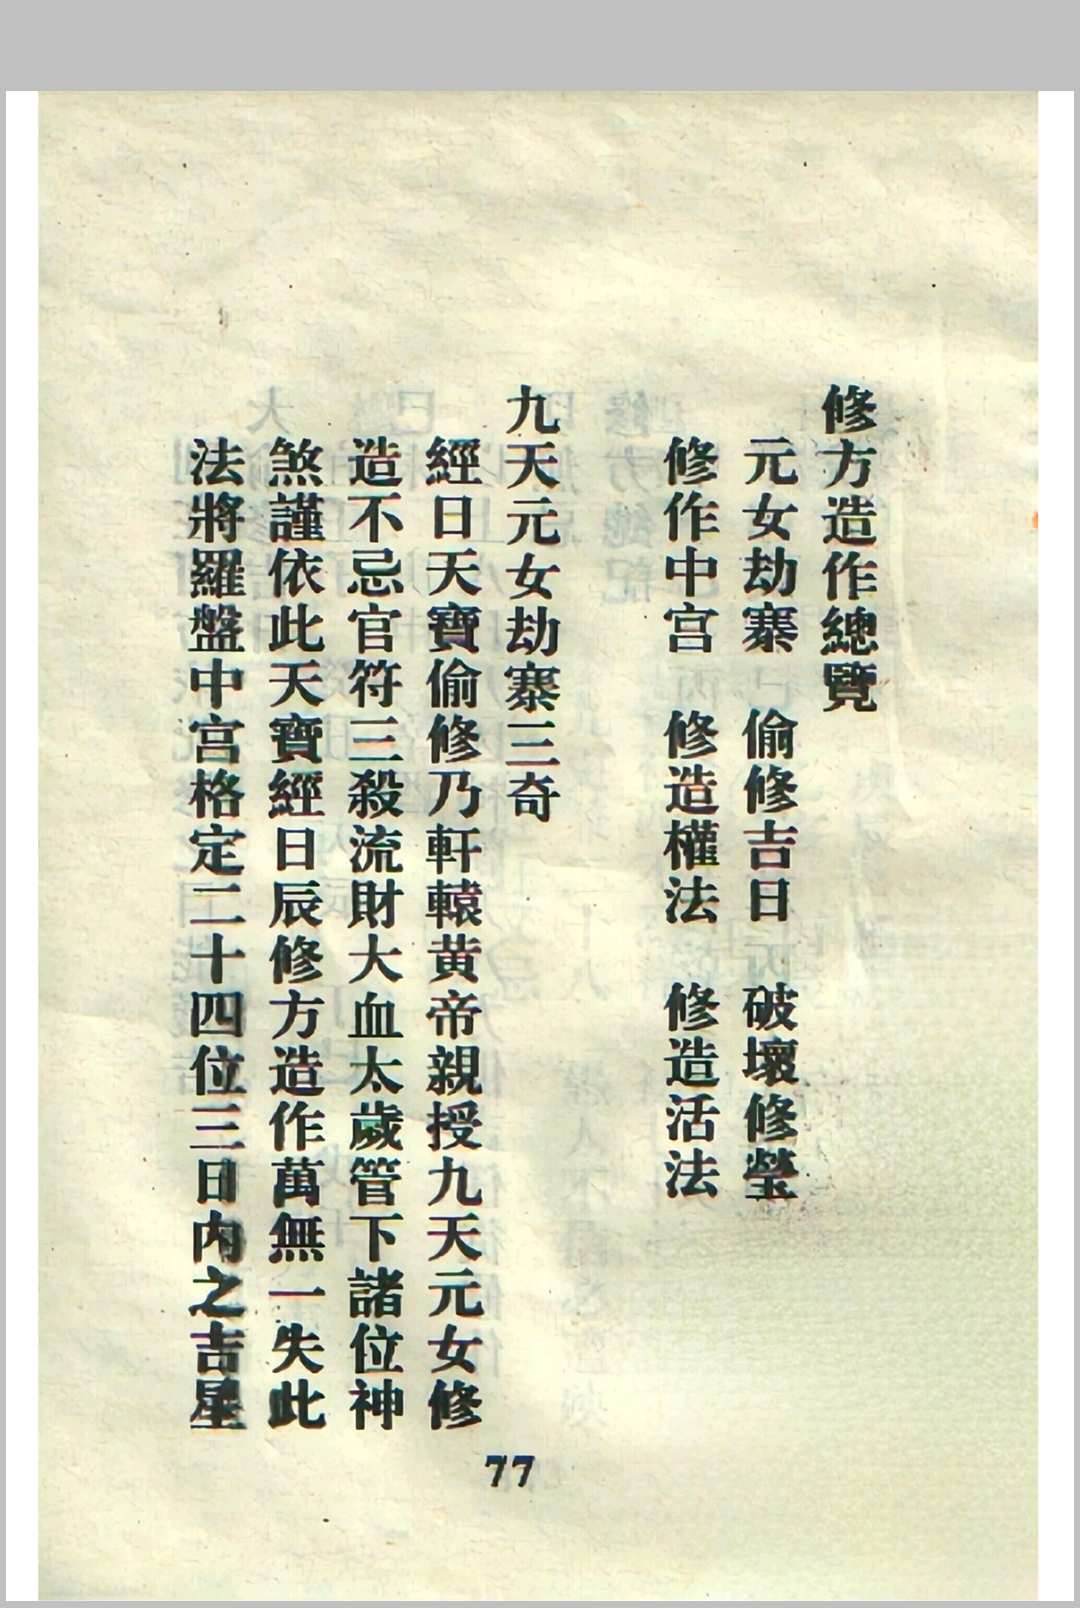 修方造作總覽
元女劫寨　偷修吉日　破壞修瑩
修作中宮　修造權法　修造活法
九天元女劫寨三奇
經日天寶偷修乃軒轅黄帝親授九天元女修
造不忌官符三殺流財大血太歲管下諸位神
煞謹依此天寶經日辰修方造作萬無一失此
法將羅盤中宮格定二十四位三日内之吉星
77